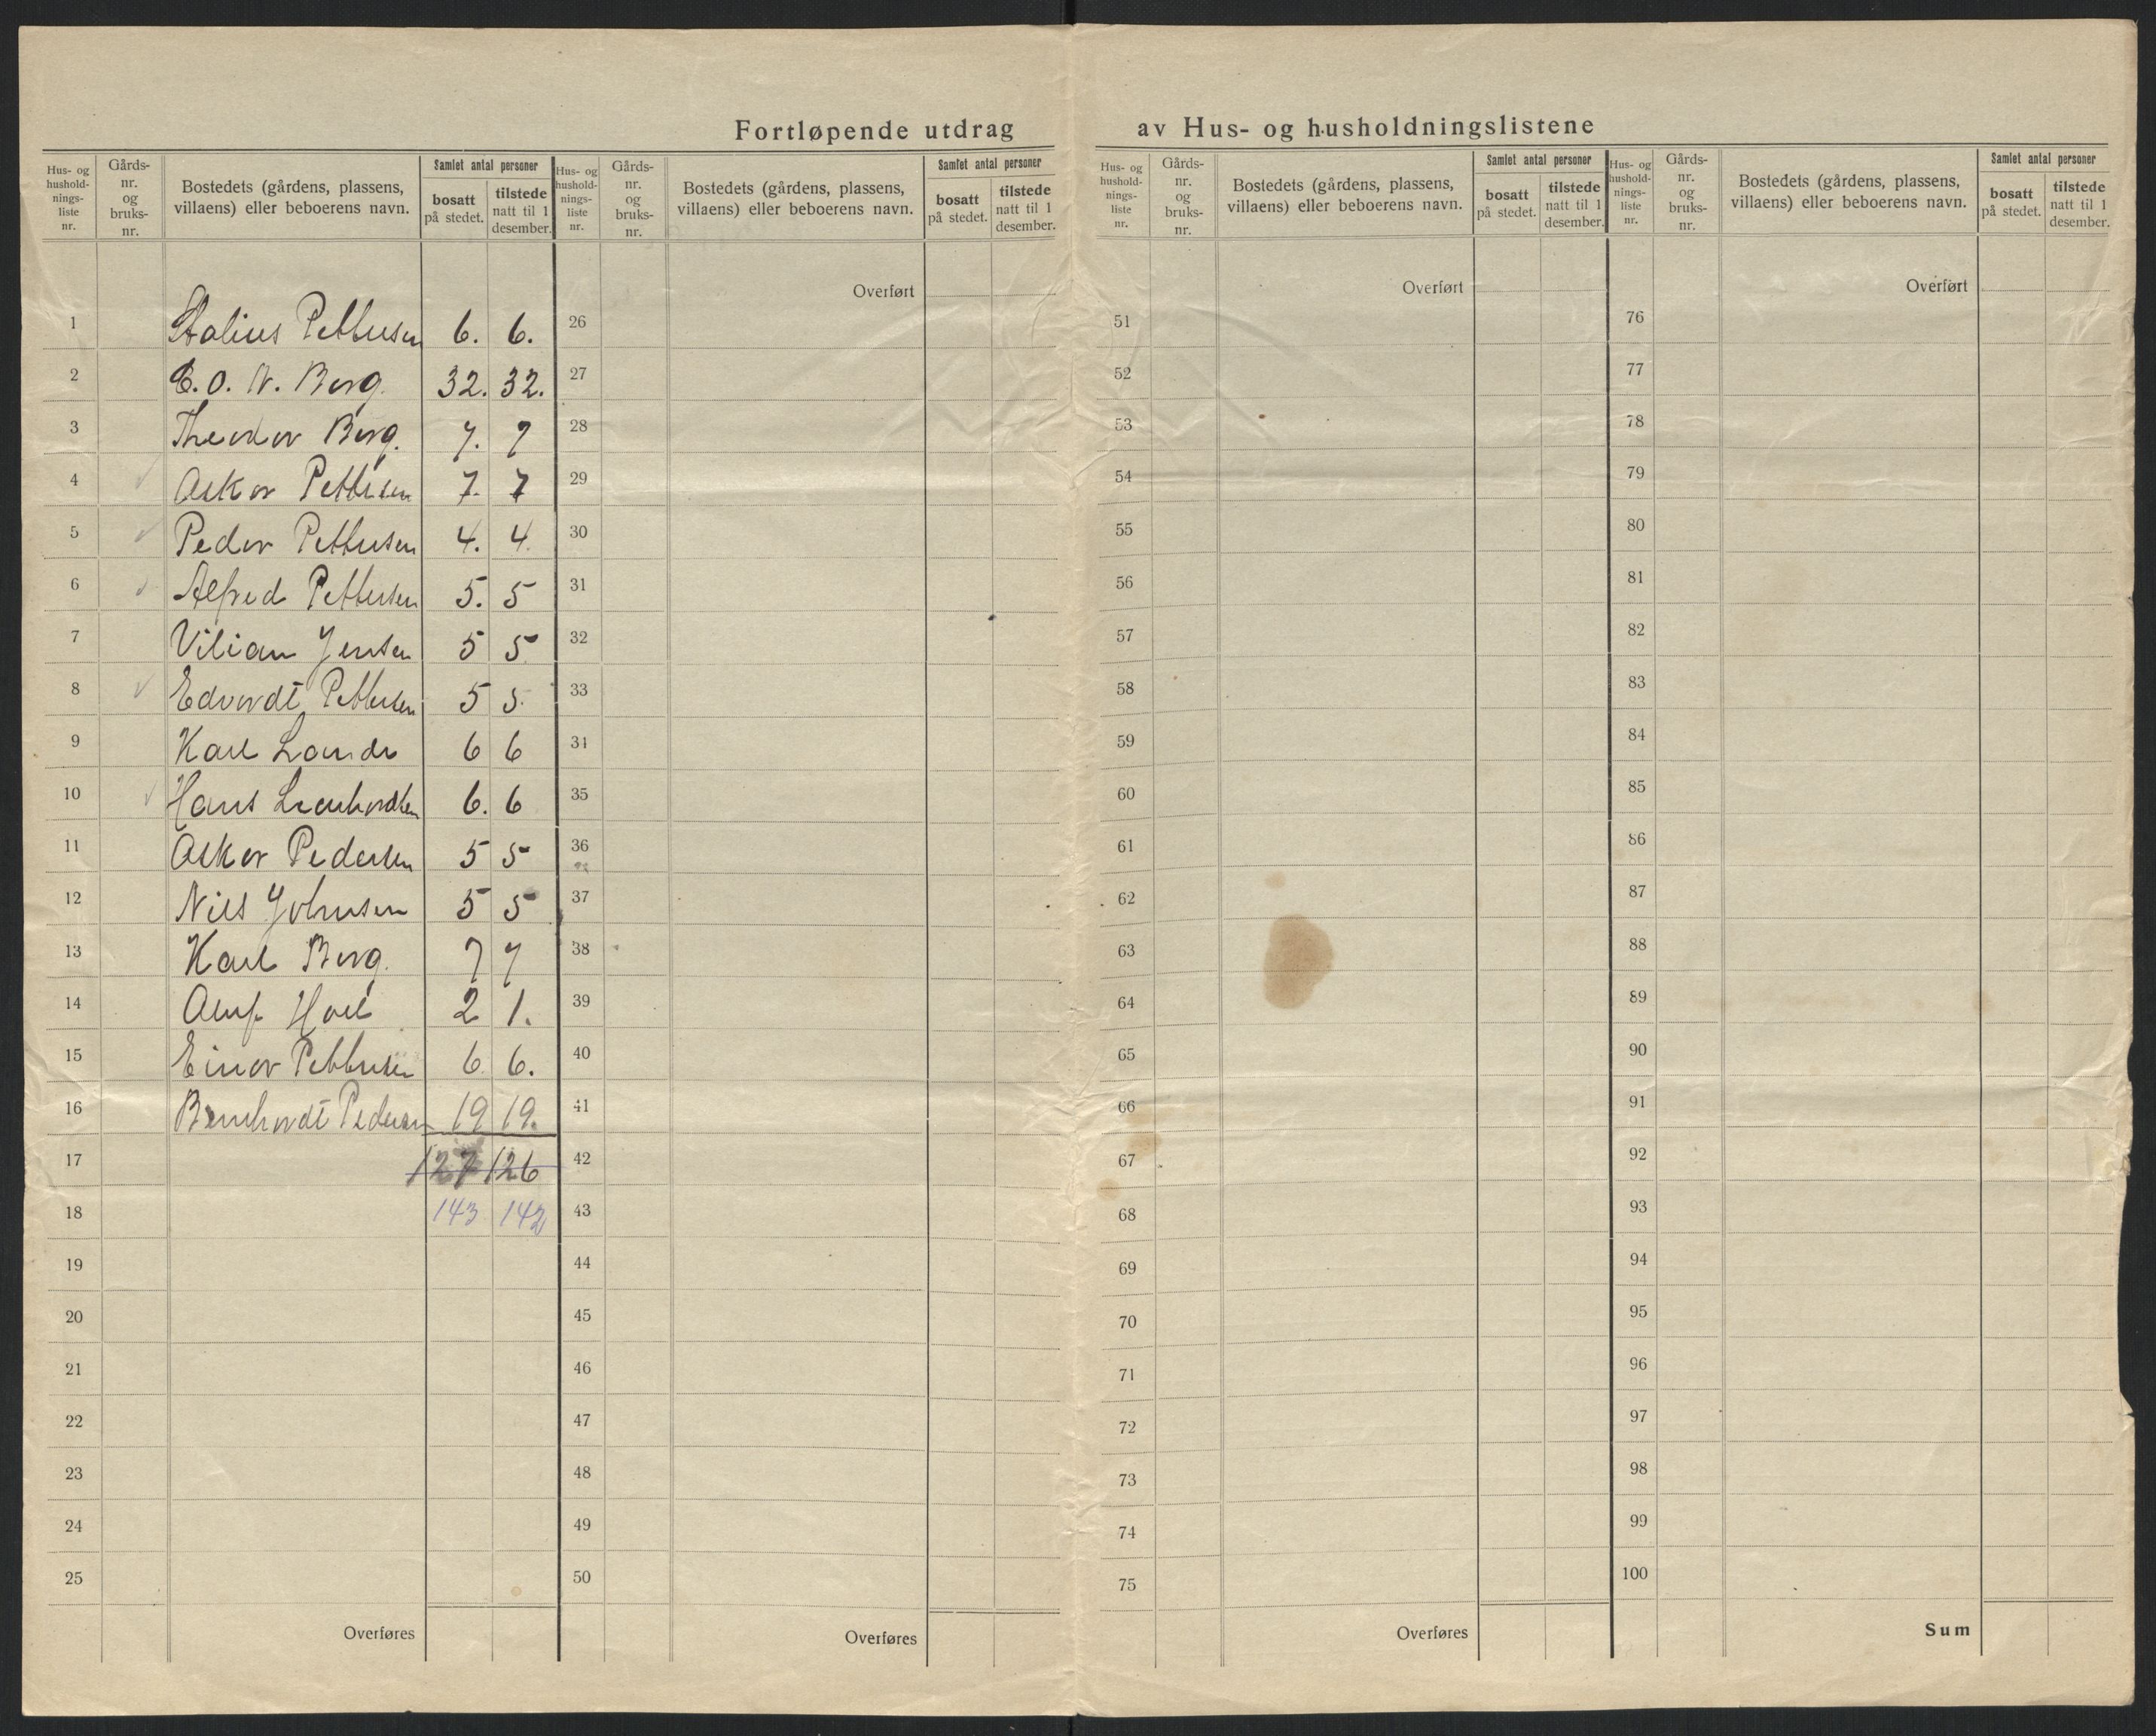 Fortløpende utdrag av Hus- og husholdningslistene
Hus- og hushold-nings-liste nr. Gårds-nr. og bruks-nr. Bostedets (gårdens, plassens, villaens) eller beboerens navn. Samlet antal personer bosatt på stedet. tilstede natt til 1 desember.
Hus- og hushold-nings-liste nr. Gårds-nr. og bruks-nr. Bostedets (gårdens, plassens, villaens) eller beboerens navn. Samlet antal personer bosatt på stedet. tilstede natt til 1 desember.
Hus- og hushold-nings-liste nr. Gårds-nr. og bruks-nr. Bostedets (gårdens, plassens, villaens) eller beboerens navn. Samlet antal personer bosatt på stedet. tilstede natt til 1 desember.
Hus- og hushold-nings-liste nr. Gårds-nr. og bruks-nr. Bostedets (gårdens, plassens, villaens) eller beboerens navn. Samlet antal personer bosatt på stedet. tilstede natt til 1 desember.
1 Pettersen 6. 6.
2 E. O. N. Berg. 32. 32.
3 Theodor Berg. 7. 7
4 Oskar Pettersen 7. 7
5 Peder Pettersen 4. 4.
6 Alfred Pettersen 5. 5
7 Vilian Jensen 5 5
8 Edvardt Pettersen 5 5.
9 Karl Lande 6 6
10 Hans 6. 6
11 Oskar Pedersen 5 5
12 Nils Johnsen 5 5
13 Karl Berg. 7 7
14 Oluf Hoel 2 1.
15 Einar Pettersen 6 6.
16 Bernhardt Pedersen 19 19.
17 127 126
18 143 142
19
20
21
22
23
24
25
Overføres
Overført
26
27
28
29
30
31
32
33
34
35
36
37
38
39
40
41
42
43
44
45
46
47
48
49
50
Overføres
Overført
51
52
53
54
55
56
57
58
59
60
61
62
63
64
65
66
67
68
69
70
71
72
73
74
75
Overføres
Overført
76
77
78
79
80
81
82
83
84
85
86
87
88
89
90
91
92
93
94
95
96
97
98
99
100
Sum